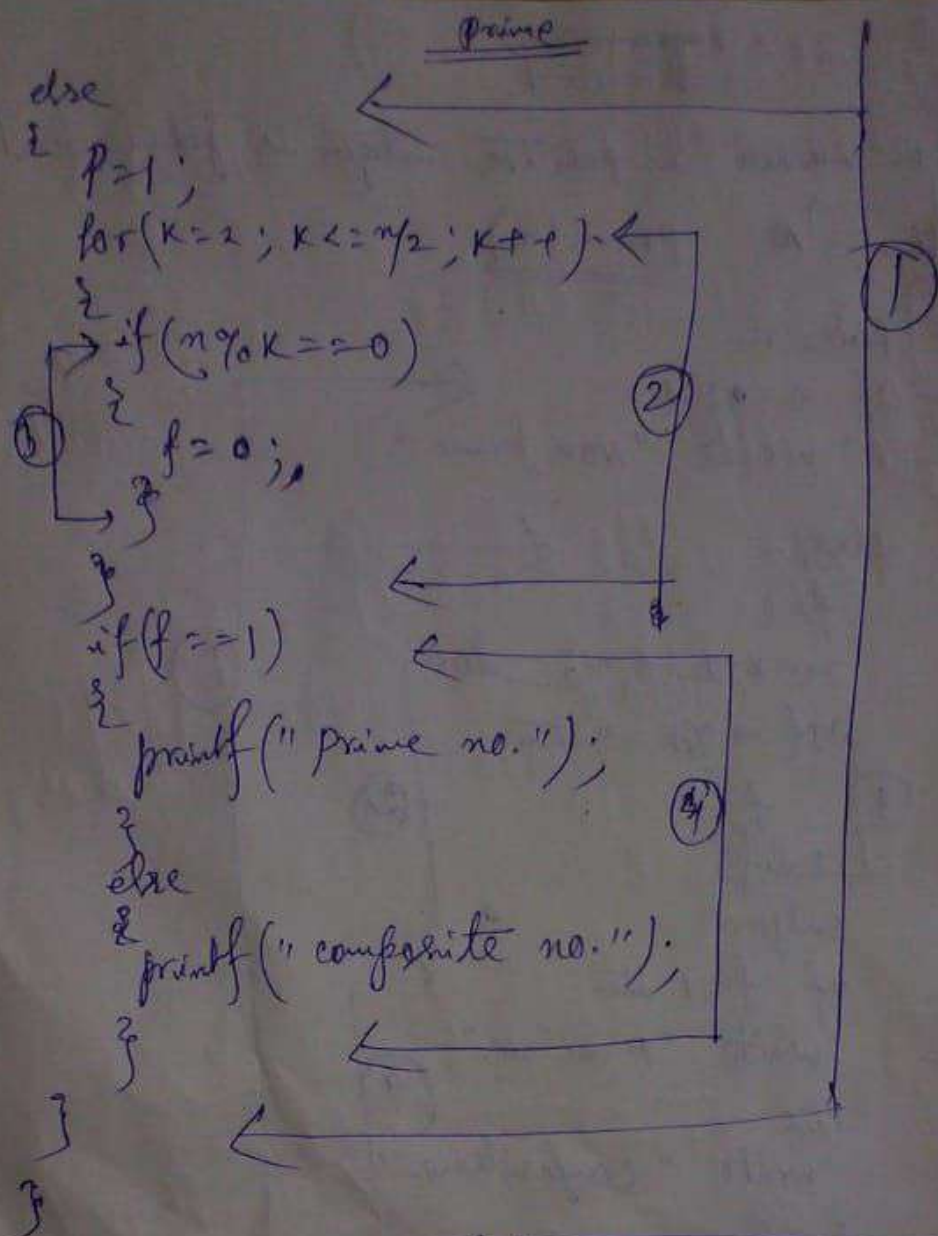 prime
else
{
f=1;
for(k=2; k<=n/2; k++)
{
if(n%k==0)
{
f=0;
}
}
if(f==1)
{
printf("prime no.");
}
else
{
printf("composite no.");
}
}
}
1
2
4